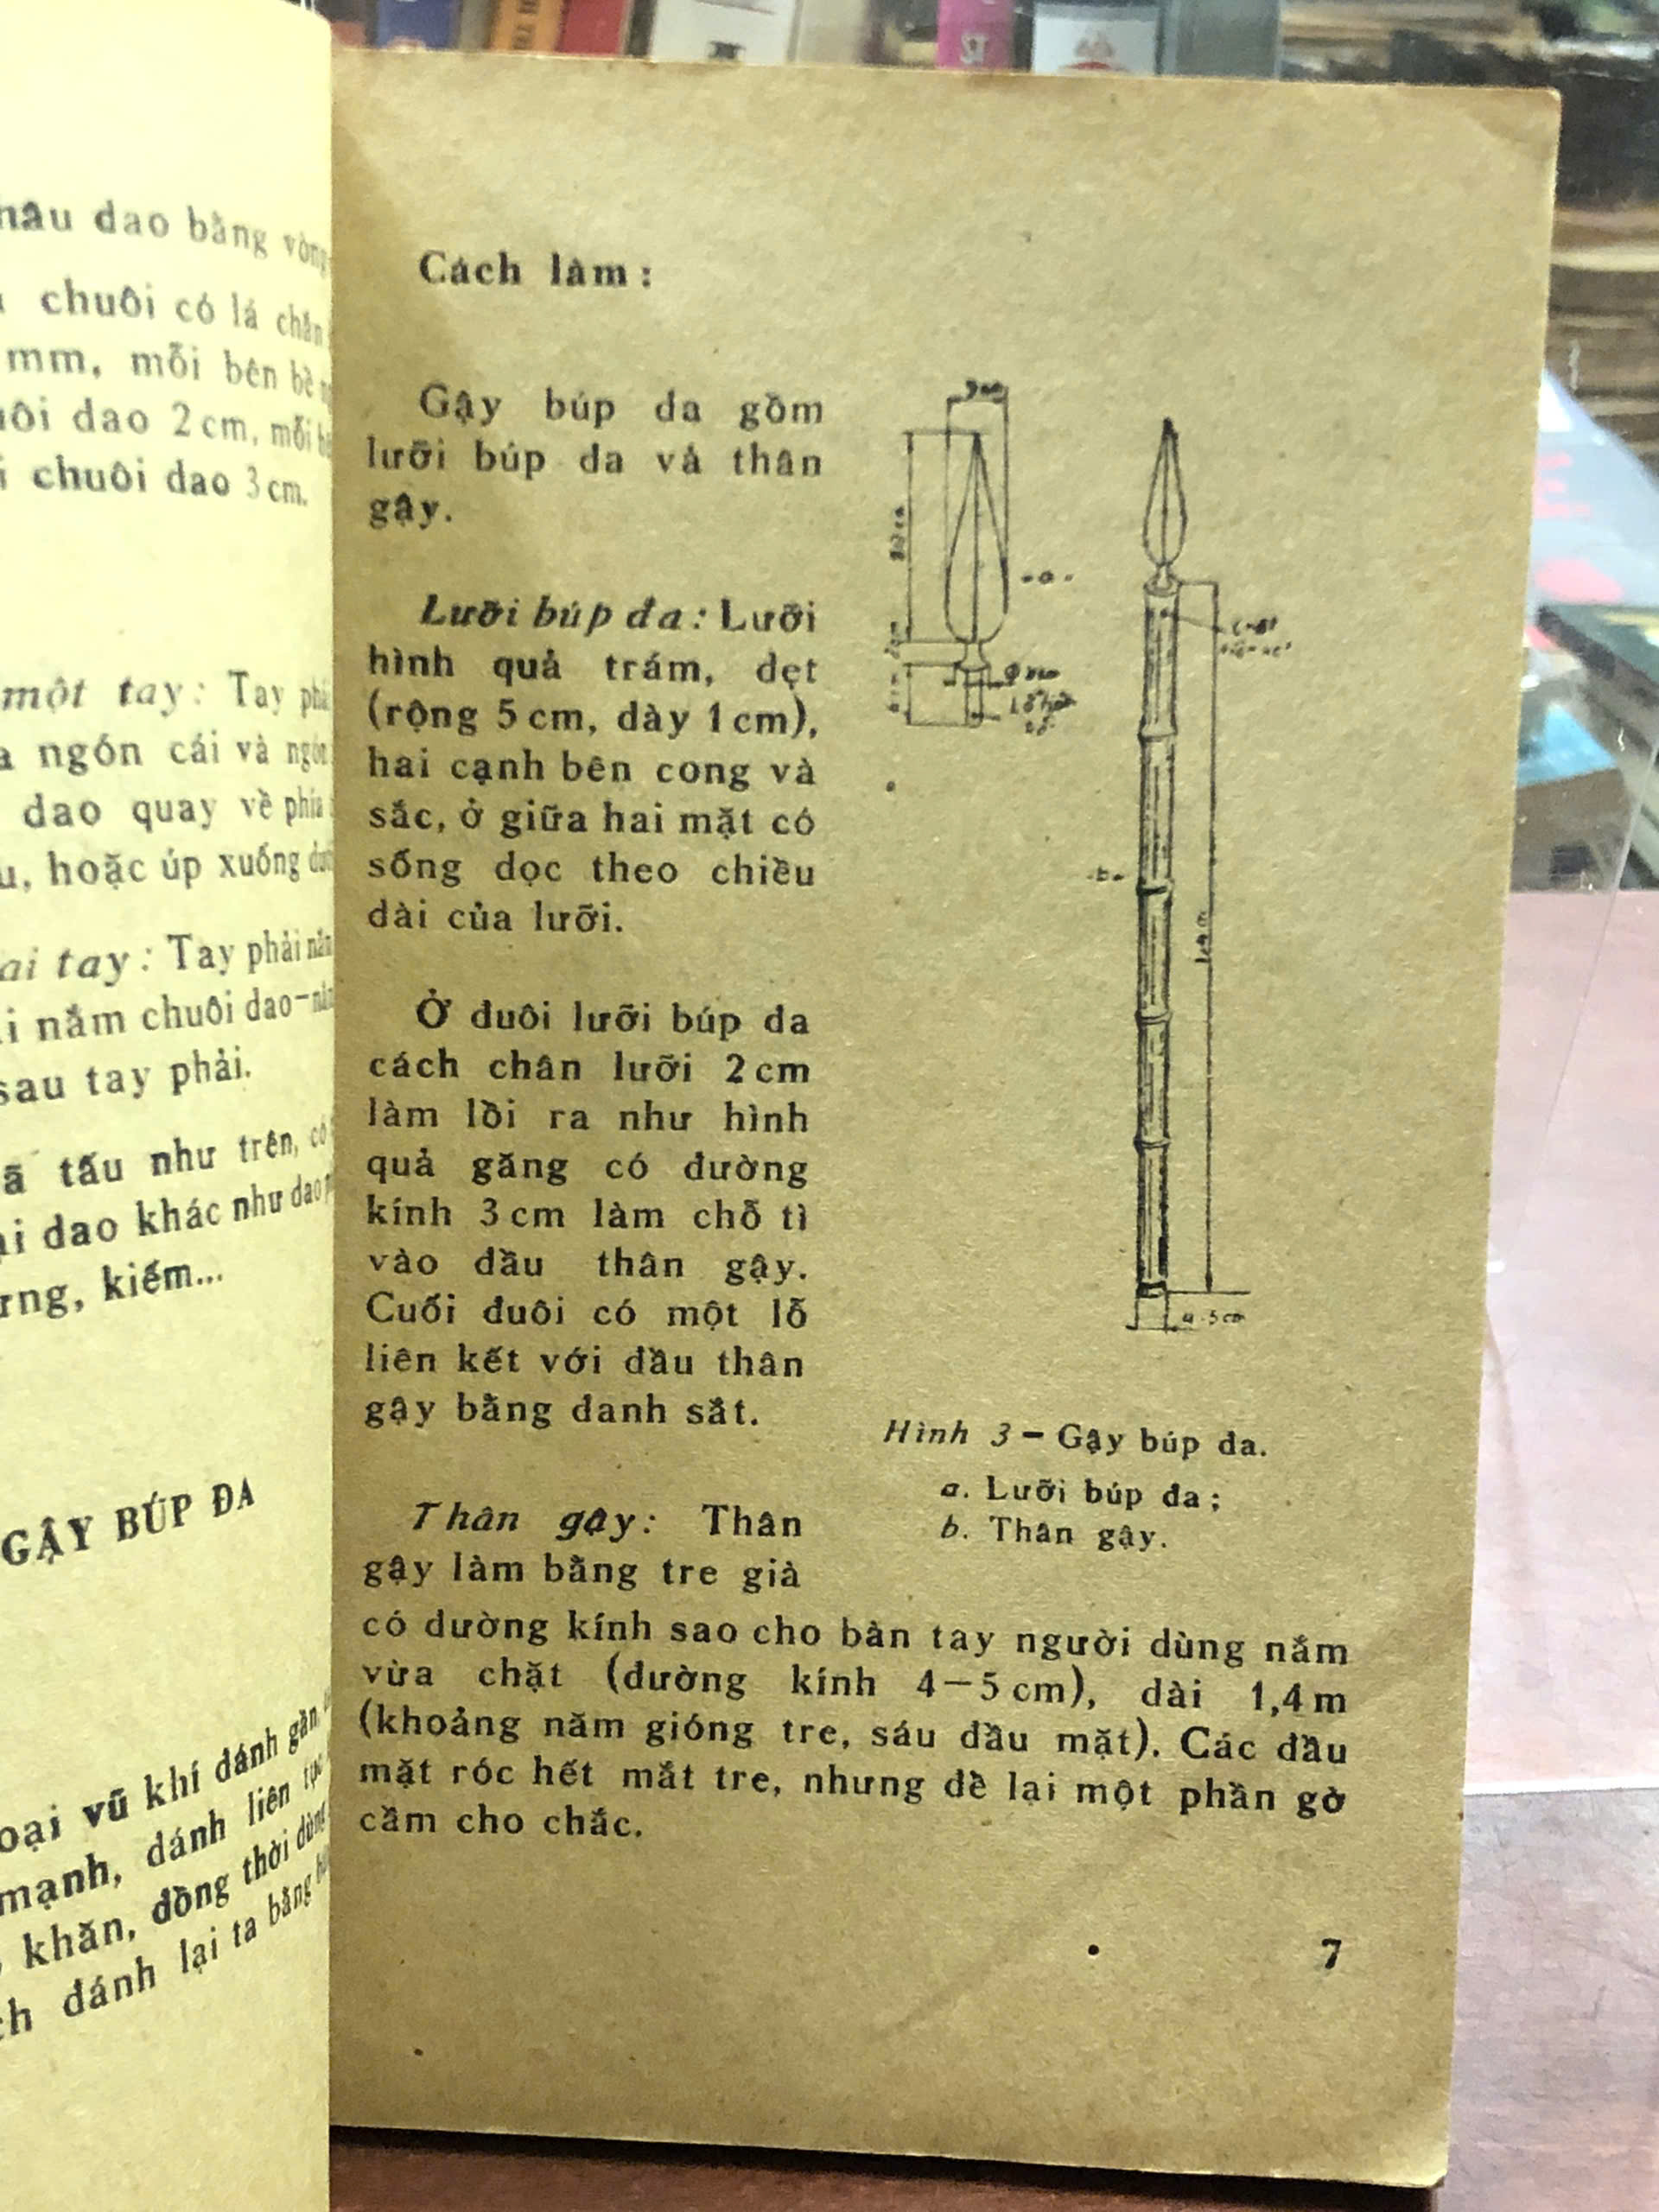 dao bằng
chuôi có lá chắn
mm, mỗi bên bề
dao 2 cm, mỗi
chuôi dao 3 cm.
một tay: Tay
ngón cái và
dao quay về phía
hoặc úp xuống
tay: Tay phải
nắm chuôi dao
sau tay phải.
tấu như trên, có
dao khác như dao
kiếm...
GẬY BÚP ĐA
vũ khí đánh gần
mạnh, đánh liên tục
khăn, đồng thời dùng
đánh lại ta bằng
Cách làm :
Gậy búp đa gồm
lưỡi búp đa và thân
gậy.
Lưỡi búp đa : Lưỡi
hình quả trám, dẹt
(rộng 5 cm, dày 1 cm),
hai cạnh bên cong và
sắc, ở giữa hai mặt có
sống dọc theo chiều
dài của lưỡi.
Ở đuôi lưỡi búp đa
cách chân lưỡi 2 cm
làm lồi ra như hình
quả găng có đường
kính 3 cm làm chỗ tì
vào đầu thân gậy.
Cuối đuôi có một lỗ
liên kết với đầu thân
gậy bằng đanh sắt.
Thân gậy : Thân
gậy làm bằng tre già
có đường kính sao cho bàn tay người dùng nắm
vừa chặt (đường kính 4 — 5 cm), dài 1,4 m
(khoảng năm gióng tre, sáu đầu mặt). Các đầu
mặt róc hết mắt tre, nhưng để lại một phần gờ
cầm cho chắc.
-a-
-b-
1,4 m
4-5cm
Hình 3 — Gậy búp đa.
a. Lưỡi búp đa ;
b. Thân gậy.
7